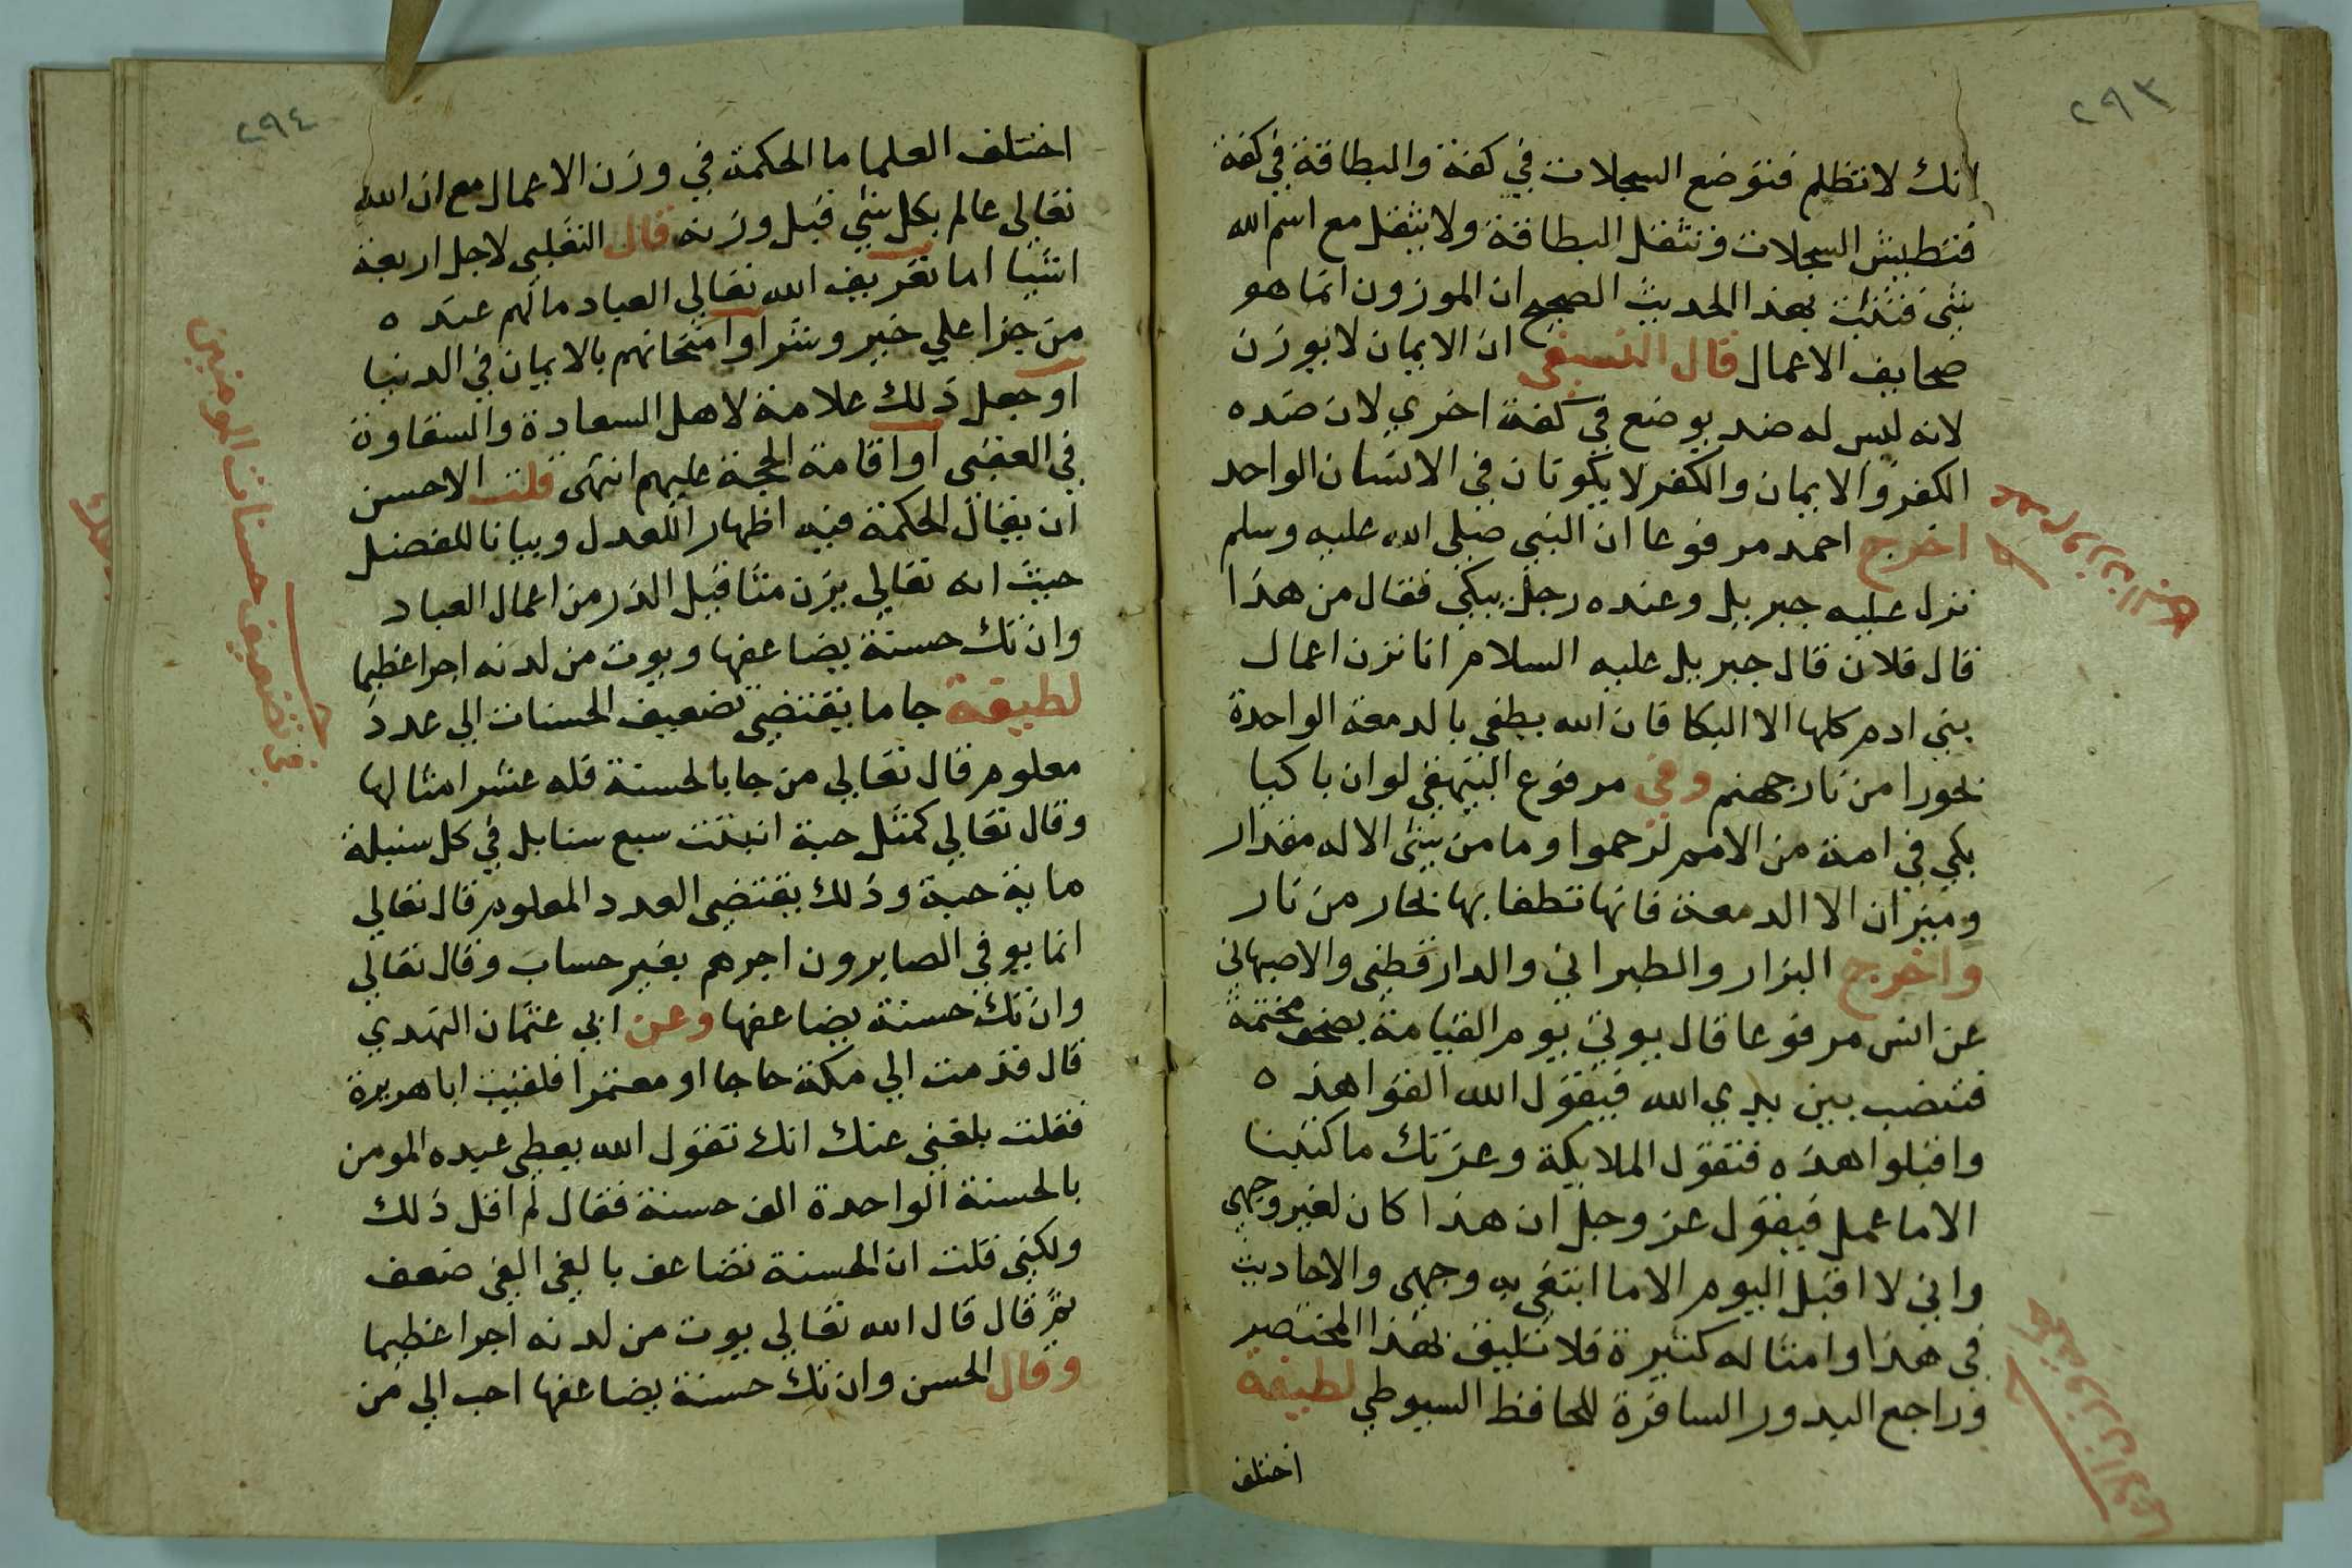 ٢٩٣
انك لا تظلم فتوضع السجلات في كفة والبطاقة في كفة
فتطيش السجلات وتثقل البطاقة ولا يثقل مع اسم الله
شي فثبت بهذا الحديث الصحيح ان الموزون انما هو
صحايف الاعمال قال النسفي ان الايمان لا يوزن
لانه ليس له ضد يوضع في كفة اخري لان ضده
الكفر والايمان والكفر لا يكونان في الانسان الواحد
اخرج احمد مرفوعا ان النبي صلى الله عليه وسلم
نزل عليه جبريل وعنده رجل يبكي فقال من هذا
قال فلان قال جبريل عليه السلام انا نزن اعمال
بني ادم كلها الا البكا فان الله يطفي بالدمعة الواحدة
بحورا من نار جهنم وفي مرفوع البيهقي لو ان باكيا
بكي في امة من الامم لرحموا وما من شي الا له مقدار
وميزان الا الدمعة فانها تطفا بها بحار من نار
واخرج البزار والطبراني والدارقطني والاصبهاني
عن انس مرفوعا قال يوتي يوم القيامة بصحف مختمة
فتنصب بين يدي الله فيقول الله القوا هذه
واقبلوا هذه فتقول الملايكة وعزتك ما كتبنا
الا ما عمل فيقول عز وجل ان هذا كان لغير وجهي
واني لا اقبل اليوم الا ما ابتغي به وجهي والاحاديث
في هذا وامثاله كثيرة فلا تليق بهذا المختصر
وراجع البدور السافرة للحافظ السيوطي لطيفة
اختلف
٢٩٤
اختلف العلما ما الحكمة في وزن الاعمال مع ان الله
تعالي عالم بكل شي قبل وزنه قال الثعلبي لاجل اربعة
اشيا اما تعريف الله تعالي العباد ما لهم عنده
من جزا علي خير وشر او امتحانهم بالايمان في الدنيا
او جعل ذلك علامة لاهل السعادة والشقاوة
في العقبى او اقامة الحجة عليهم انتهى قلت الاحسن
ان يقال الحكمة فيه اظهارا للعدل وبيانا للفضل
حيث انه تعالي يزن مثاقيل الذر من اعمال العباد
وان تك حسنة يضاعفها ويوت من لدنه اجرا عظيما
لطيفة جا ما يقتضي تضعيف الحسنات الي عدد
معلوم قال تعالي من جا بالحسنة فله عشر امثالها
وقال تعالي كمثل حبة انبتت سبع سنابل في كل سنبلة
ماية حبة وذلك يقتضي العدد المعلوم قال تعالي
انما يوفي الصابرون اجرهم بغير حساب وقال تعالي
وان تك حسنة يضاعفها وعن ابي عثمان النهدي
قال قدمت الي مكة حاجا او معتمرا فلقيت ابا هريرة
فقلت بلغني عنك انك تقول الله يعطي عبده المومن
بالحسنة الواحدة الف حسنة فقال لم اقل ذلك
ولكني قلت ان الحسنة تضاعف بالفي الفي ضعف
ثم قال قال الله تعالي يوت من لدنه اجرا عظيما
وقال الحسن وان تك حسنة يضاعفها احب الي من
في تضعيف حسنات المومنين